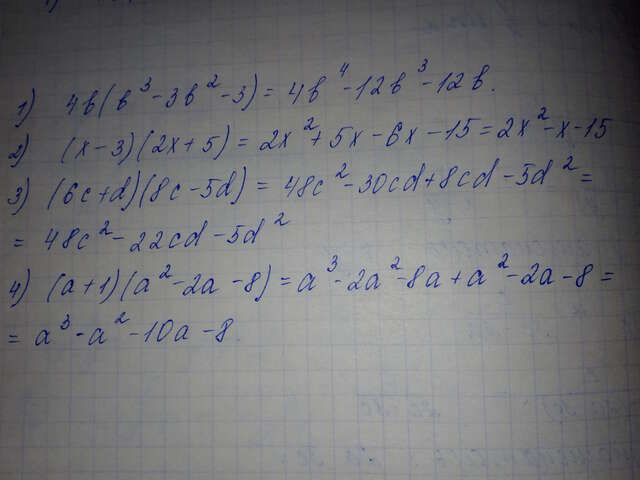 1) 4b(b³-3b²-3)=4b⁴-12b³-12b.
2) (x-3)(2x+5)=2x²+5x-6x-15=2x²-x-15
3) (6c+d)(8c-5d)=48c²-30cd+8cd-5d²=
=48c²-22cd-5d²
4) (a+1)(a²-2a-8)=a³-2a²-8a+a²-2a-8=
=a³-a²-10a-8.